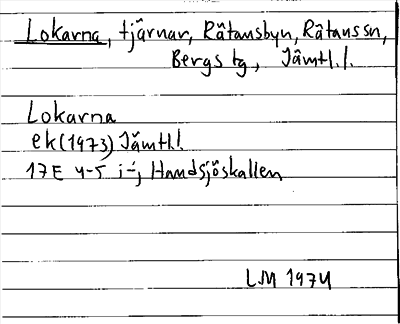 Lokarna, tjärnar, Rätansbyn, Rätans sn,
Bergs tg, Jämtl.l.
Lokarna
ek (1973) Jämtl.l
17E 4-5 i-j Handsjöskallen
LM 1974